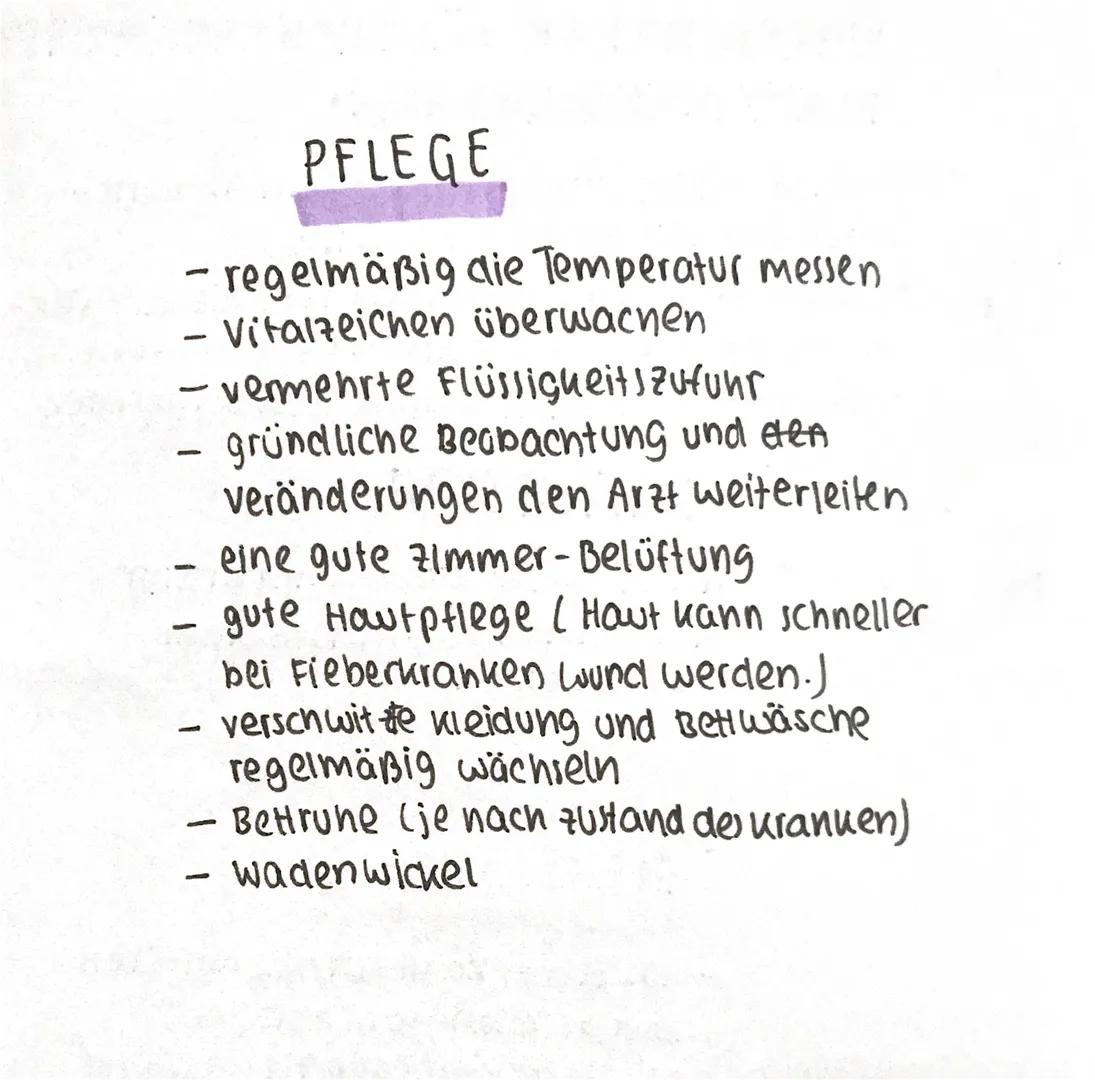 PFLEGE
- regelmäßig die Temperatur messen
- Vitalzeichen überwachen
- vermehrte Flüssigkeitszufuhr
- gründliche Beobachtung und den
veränderungen den Arzt weiterleiten
- eine gute Zimmer-Belüftung
- gute Hautpflege (Haut kann schneller
bei Fieberkranken wund werden.)
- verschwitte Kleidung und Bettwäsche
regelmäßig wächseln
- Bettruhe (je nach Zustand des Kranken)
- Wadenwickel